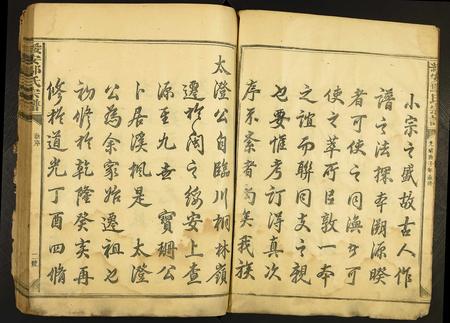 小宗之盛故古人作
譜之法探本溯源暌
者可使之同渙者可
使之萃所呂敦一本
之誼而聯同支之親
也要惟考訂得真次
序不紊者為矣我族
太澄公自臨川桐林嶺
遷於閩之綏安上查
源至九世寶珊公
卜居溪楓是太澄
公為余家始遷祖也
初修於乾隆癸亥再
修於道光丁酉四脩
綏安 氏宗譜